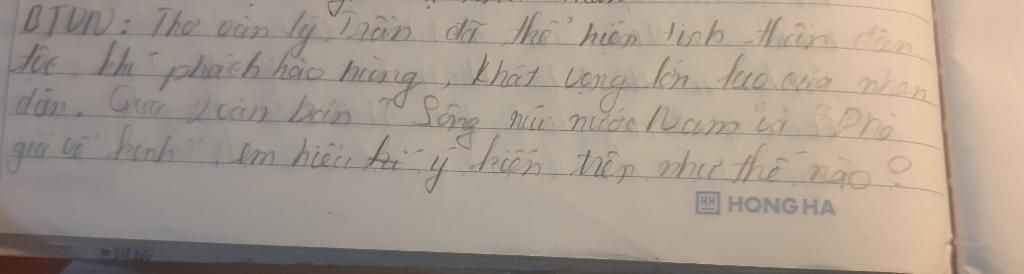 BTVN: Thơ văn Lý, Trần đã thể hiện tinh thần dân
tộc, khí phách hào hùng, khát vọng lớn lao của nhân
dân. Qua 2 văn bản "Sông núi nước Nam và "Phò
giá về kinh", em hiểu ý kiến trên như thế nào?
HH HONG HA